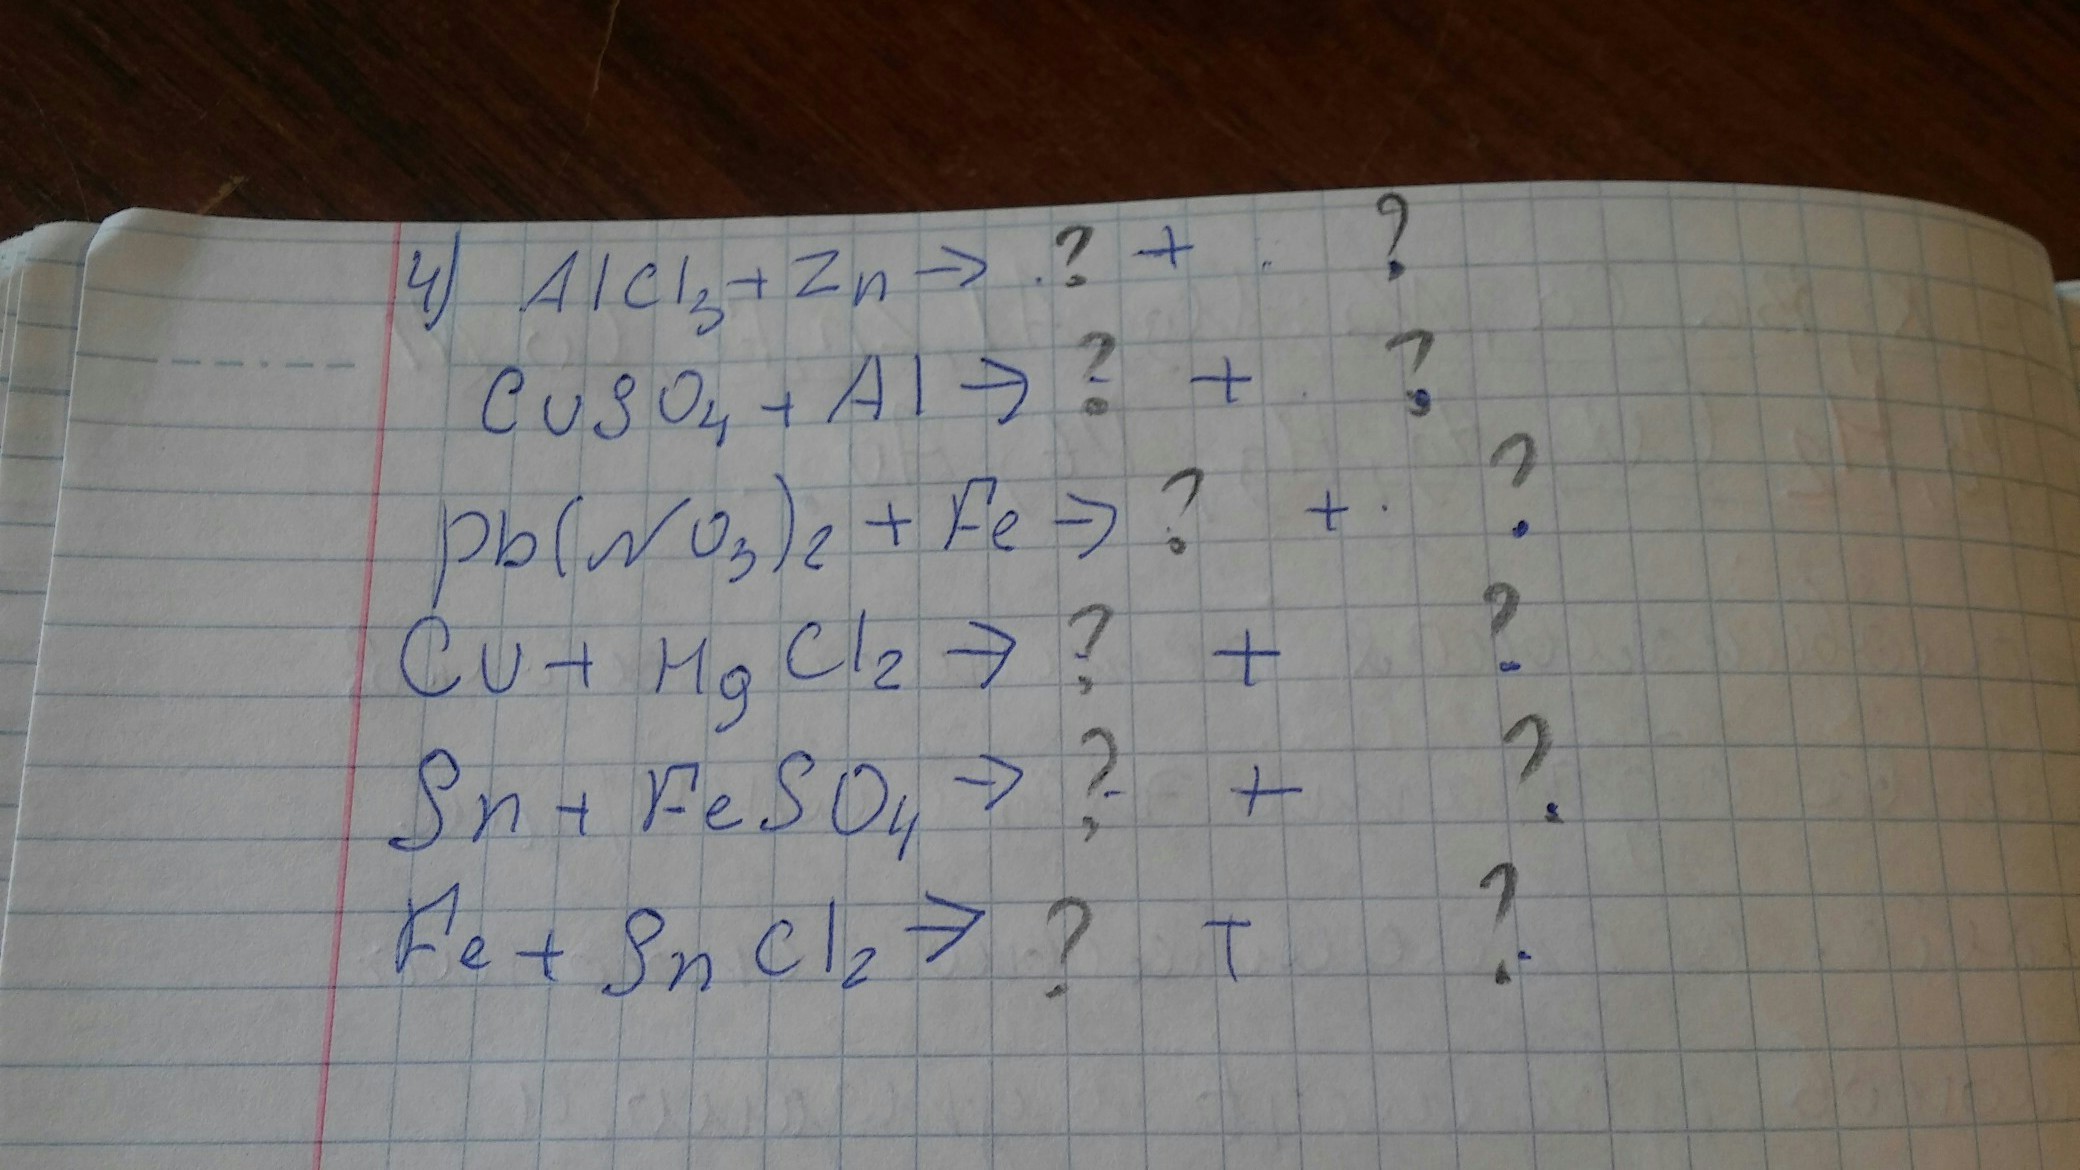 4) AlCl₃ + Zn → ? + ?
CuSO₄ + Al → ? + ?
pb(NO₃)₂ + Fe → ? + ?
Cu + HgCl₂ → ? + ?
Sn + FeSO₄ → ? + ?
Fe + SnCl₂ → ? + ?